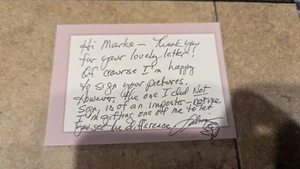 Hi Marke - Thank you
for your lovely letter!
Of course I'm happy
to sign your pictures.
However, the one I did Not
sign, is of an imposter - not me.
I'm gifting one of me to let
you see the difference